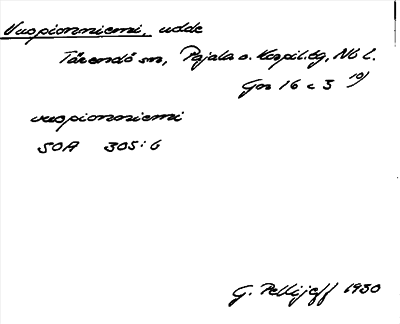 Vuopionniemi, udde
Tärendö sn, Pajala o. Korpil. tg, Nb l.
Gos 16 c 3 10)
vuopionniemi
SOA 305:6
G. Pellijeff 1930